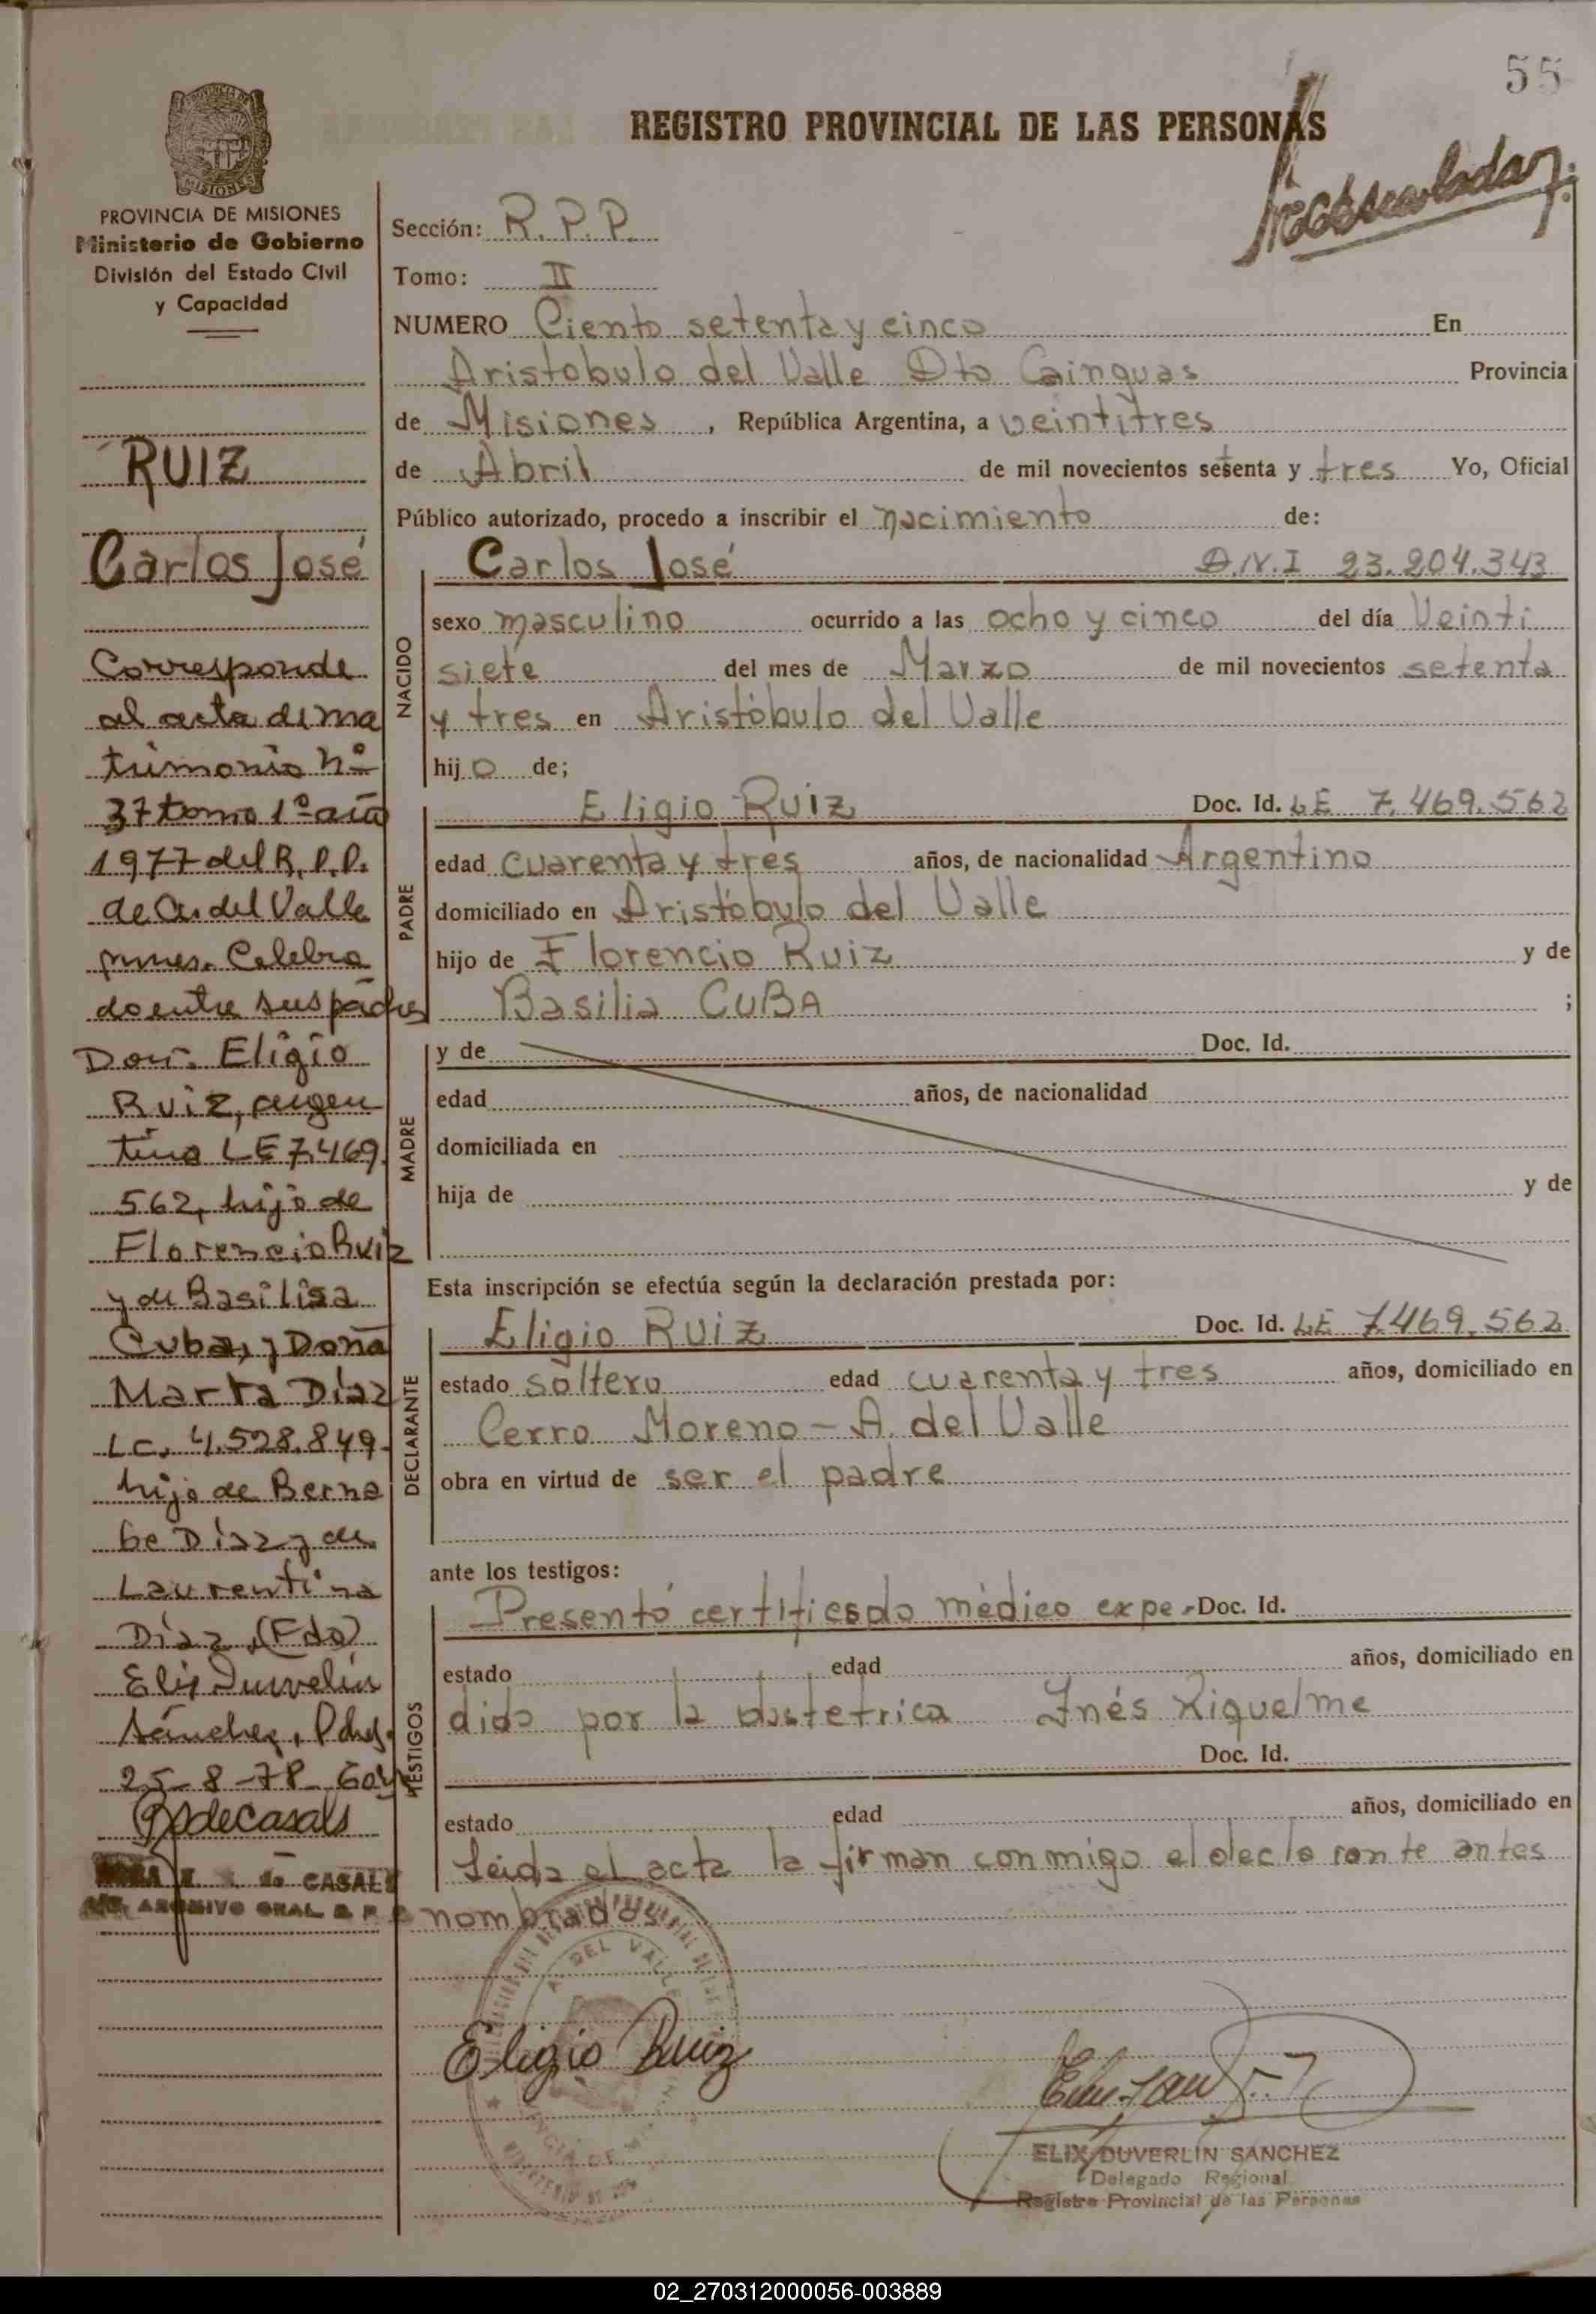 55
REGISTRO PROVINCIAL DE LAS PERSONAS
PROVINCIA DE MISIONES
Ministerio de Gobierno
División del Estado Civil
y Capacidad
RUIZ
Carlos José
Corresponde
al acta de ma
trimonio Nº
37 tomo 1º año
1977 del R.P.P.
de A. del Valle
mnes. Celebra
do entre sus padres
Don: Eligio
Ruiz, argen
tino LE 7.469.
562, hijo de
Florencio Ruiz
y de Basilisa
Cuba, y Doña
Marta Díaz
LC. 4.528.849.
hija de Berna
be Díaz y de
Laurentina
Díaz, (Fdo)
Elix Duverlín
Sánchez,
25-8-78
de Casals
de CASALS
ARCHIVO GRAL R P P
Sección: R.P.P.
Tomo: II
NUMERO Ciento setenta y cinco En
Aristobulo del Valle Dto Cainguas Provincia
de Misiones, República Argentina, a veintitres
de Abril de mil novecientos setenta y tres Yo, Oficial
Público autorizado, procedo a inscribir el nacimiento de:
NACIDO
Carlos José D.N.I 23.204.343
sexo masculino ocurrido a las ocho y cinco del día Veinti
siete del mes de Marzo de mil novecientos setenta
y tres en Aristóbulo del Valle
hijo de;
PADRE
Eligio Ruiz Doc. Id. LE 7.469.562
edad cuarenta y tres años, de nacionalidad Argentino
domiciliado en Aristóbulo del Valle
hijo de Florencio Ruiz y de
Basilia CUBA ;
MADRE
y de Doc. Id.
edad años, de nacionalidad
domiciliada en
hija de y de
Esta inscripción se efectúa según la declaración prestada por:
DECLARANTE
Eligio Ruiz Doc. Id. LE 7.469.562
estado soltero edad cuarenta y tres años, domiciliado en
Cerro Moreno - A. del Valle
obra en virtud de ser el padre
ante los testigos:
TESTIGOS
Presentó certificado médico expe- Doc. Id.
estado edad años, domiciliado en
dido por la obstetrica Inés Riquelme
Doc. Id.
estado edad años, domiciliado en
Leida el acta la firman conmigo el declarante antes
nombrados
A. DEL VALLE
Eligio Ruiz
ELIX DUVERLIN SANCHEZ
Delegado Regional
Registro Provincial de las Personas
02_270312000056-003889